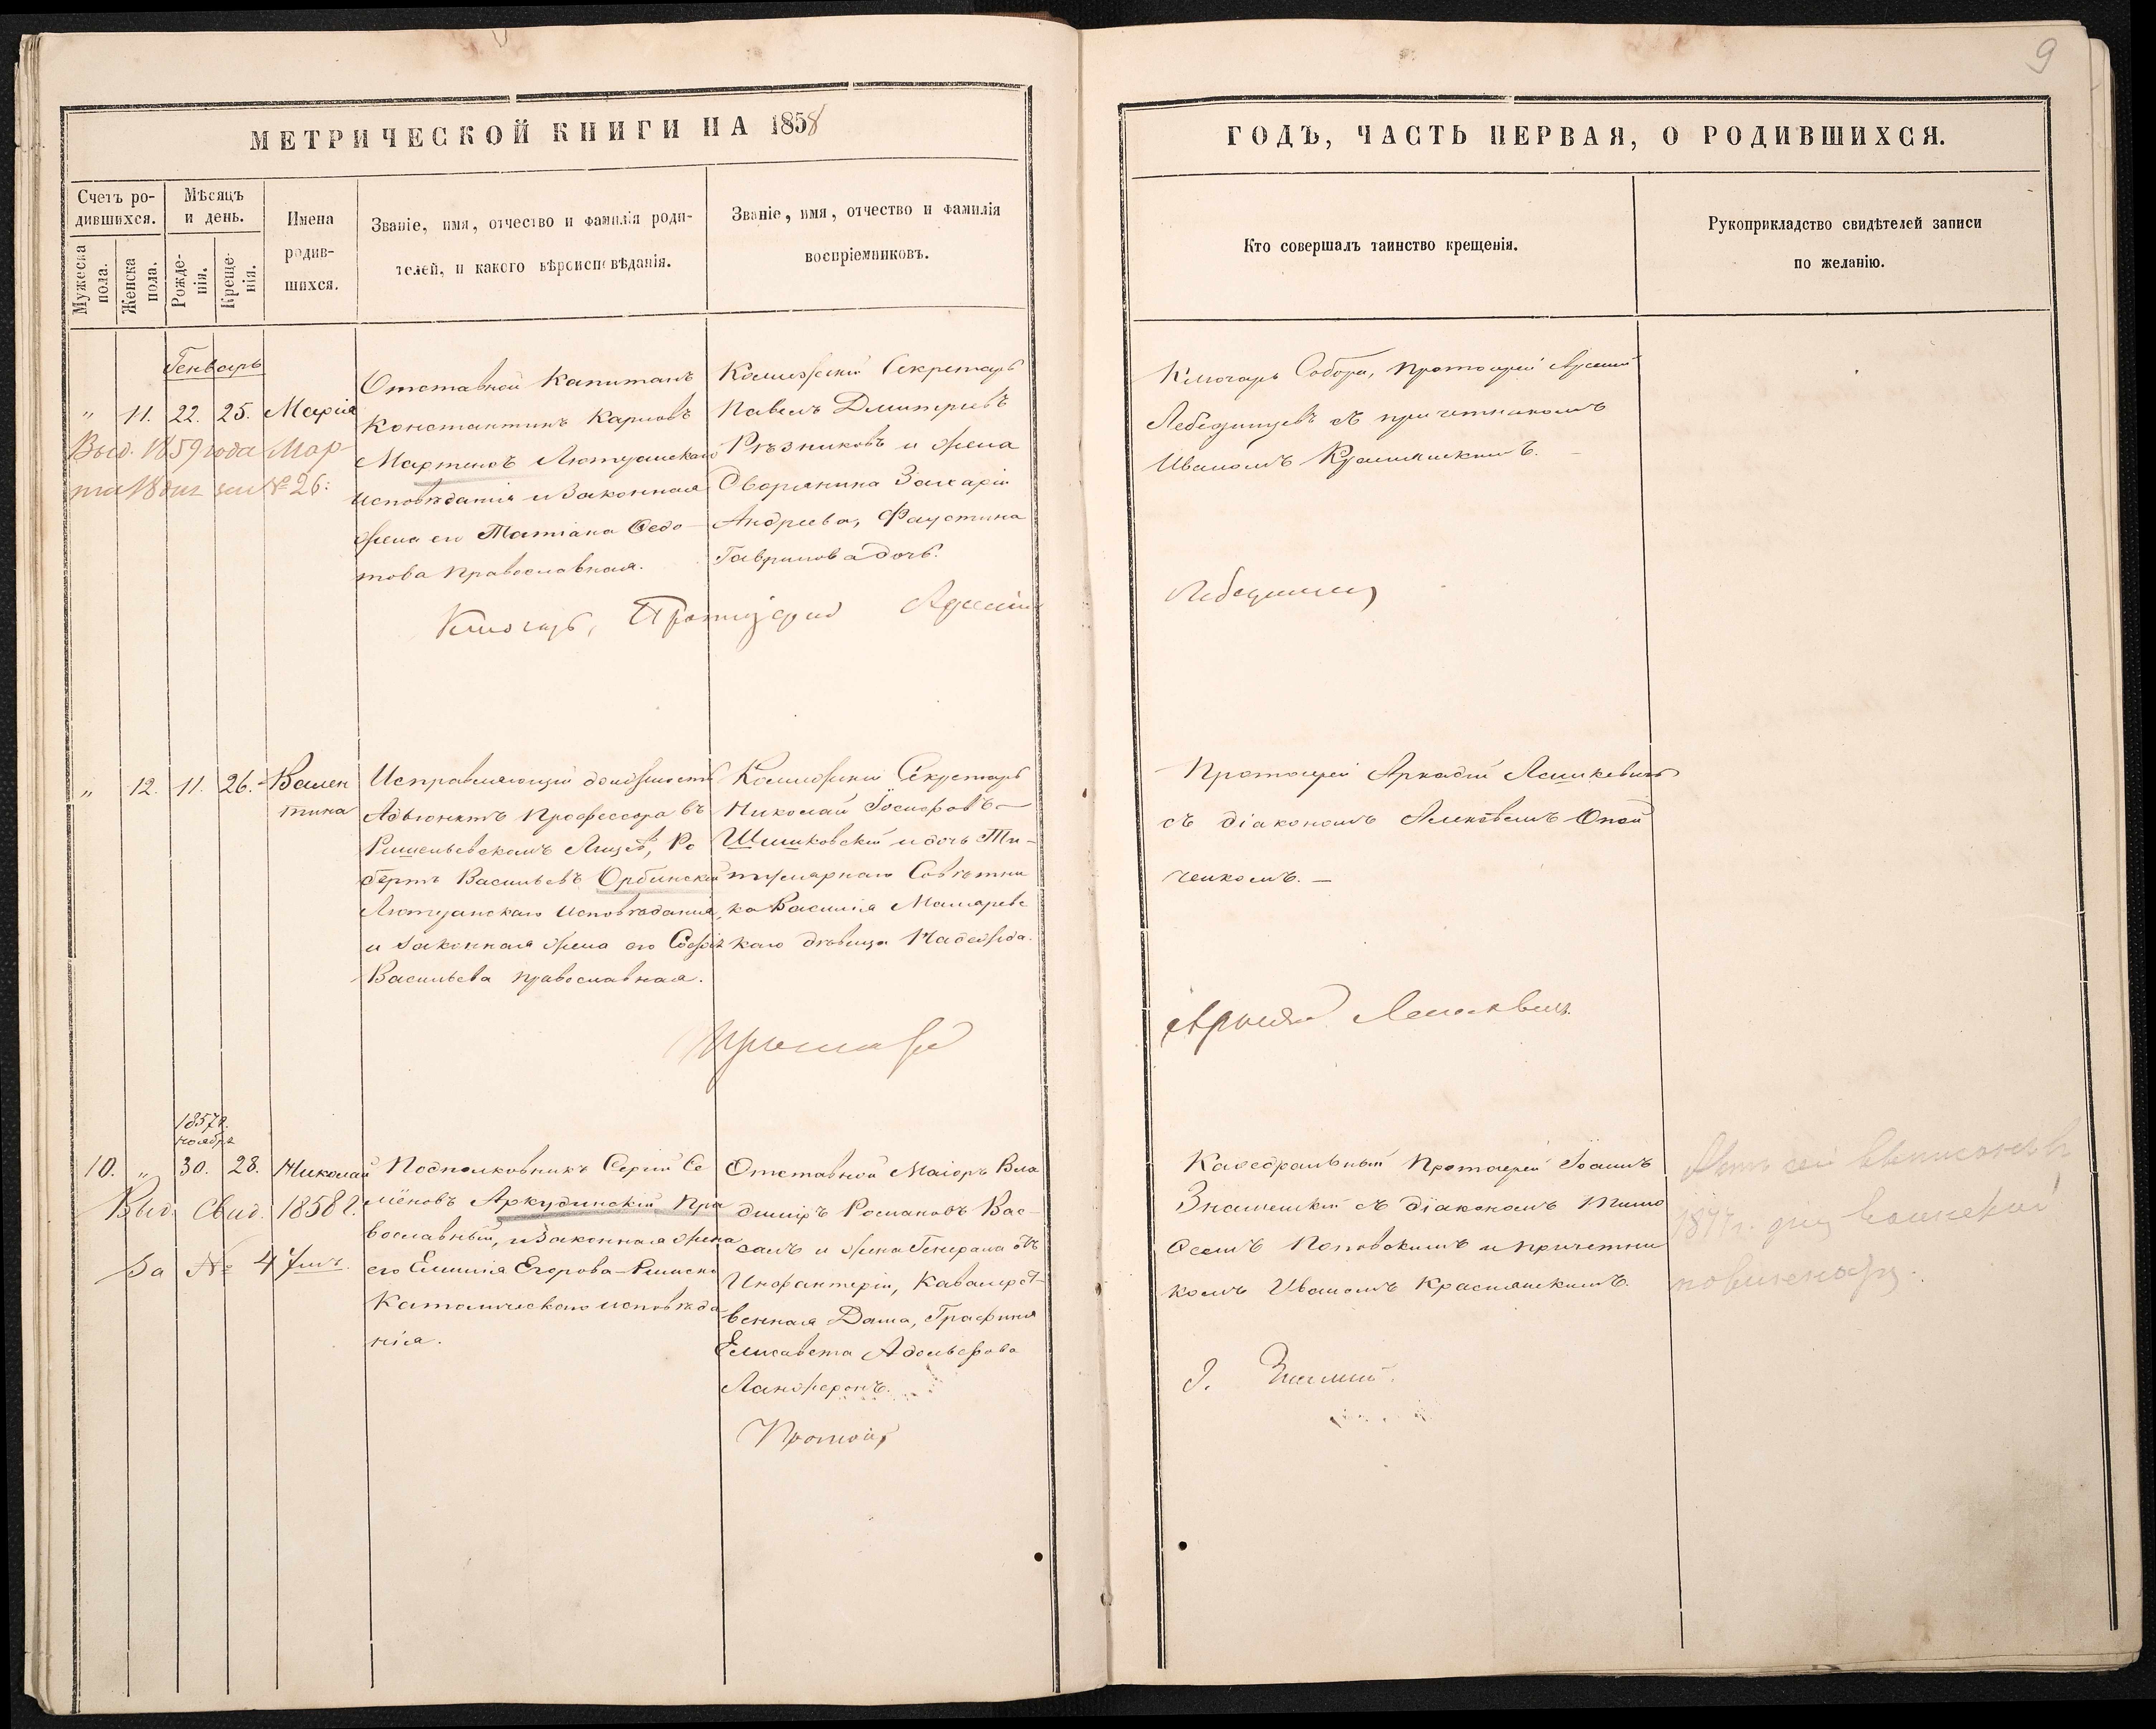 9
МЕТРИЧЕСКОЙ КНИГИ НА 1858
ГОДЪ, ЧАСТЬ ПЕРВАЯ, О РОДИВШИХСЯ.
Счетъ ро-
дившихся.
Мужеска пола.
Женска пола.
Мѣсяцъ
и день.
Рожде-
нія.
Креще-
нія.
Имена
родив-
шихся.
Званіе, имя, отчество и фамилія роди-
телей, и какого вѣроисповѣданія.
Званіе, имя, отчество и фамилія
воспріемниковъ.
Кто совершалъ таинство крещенія.
Рукоприкладство свидѣтелей записи
по желанію.
Генварь
" 11. 22. 25. Марія
Выд. 1859 года Мар-
та 18 дня за № 26:
Отставной Капитанъ
Константинъ Карловъ
Мартенсъ Лютеранскаго
исповѣданія и законная
жена его Татіана Ѳедо-
това Православная.
Коллежскій Секретарь
Павелъ Дмитріевъ
Рѣзниковъ и жена
Дворянина Захарія
Андреева, Фаустина
Гаврилова дочь.
Ключарь Собора, Протоіерей Арсеній
Лебединцевъ съ причетникомъ
Иваномъ Краснянскимъ.
Ключарь, Протоіерей Арсеній
Лебединцевъ
" 12. 11. 26. Вален
тина
Исправляющій должность
Адъюнктъ Профессора въ
Ришельевскомъ Лицеѣ, Ро
бертъ Васильевъ Орбинскій
Лютеранскаго исповѣданія,
и законная жена его Софія
Васильева православная.
Коллежскій Секретарь
Николай Іосифовъ
Шишковскій и дочь Ти-
тулярнаго Совѣтни
ка Василія
каго дѣвица Надежда.
Протоіерей Аркадій
съ діакономъ
ченкомъ.
10. " 1857 г.
ноября
30. 28. Николай
Выд. Свид. 1858 г.
за № 4
Подполковникъ Сергій Се
мёновъ Аркудинскій Пра
вославный, и законная жена
его Емилія Егорова Римско
Католическаго исповѣда
нія.
Отставной Маіоръ Вла
диміръ Романовъ Вас-
салъ и жена Генерала отъ
Инфантеріи, Кавалерст-
венная Дама, Графиня
Елисавета Адольфова
Ланжеронъ.
Каѳедральный Протоіерей Іоаннъ
Знаменскій съ діакономъ Тимо
ѳеемъ Поповскимъ и причетни
комъ Иваномъ Краснянскимъ.
Протоіер.
І. Знаменскій.
1877 г.